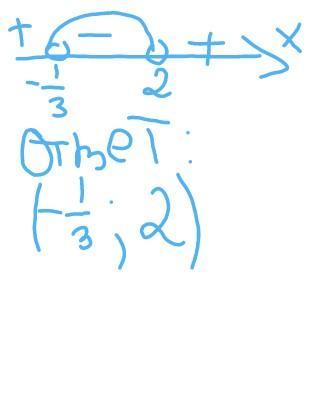 + − + x
-1/3 2
Ответ:
(-1/3; 2)